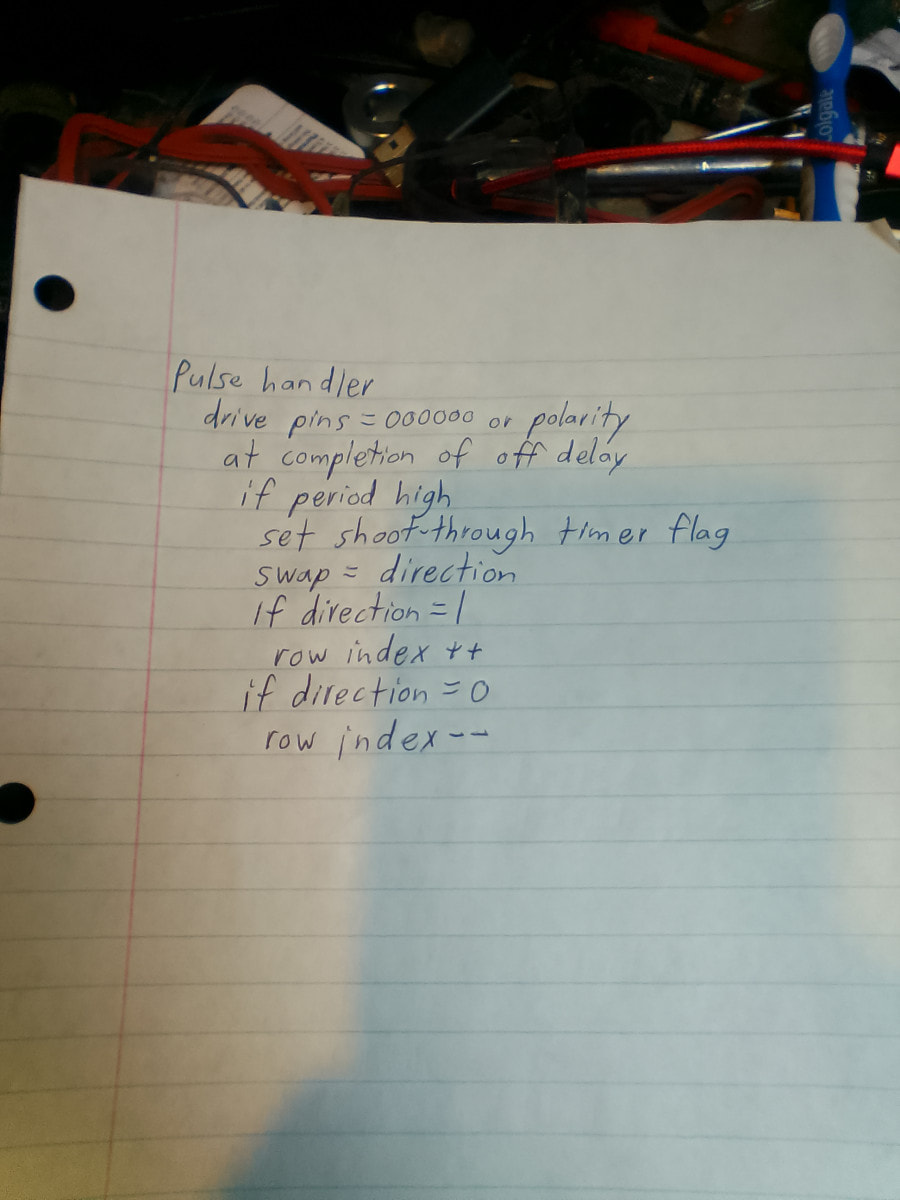 Colgate
Pulse handler
drive pins = 000000 or polarity
at completion of off delay
if period high
set shoot-through timer flag
swap = direction
If direction = 1
row index ++
if direction = 0
row index --